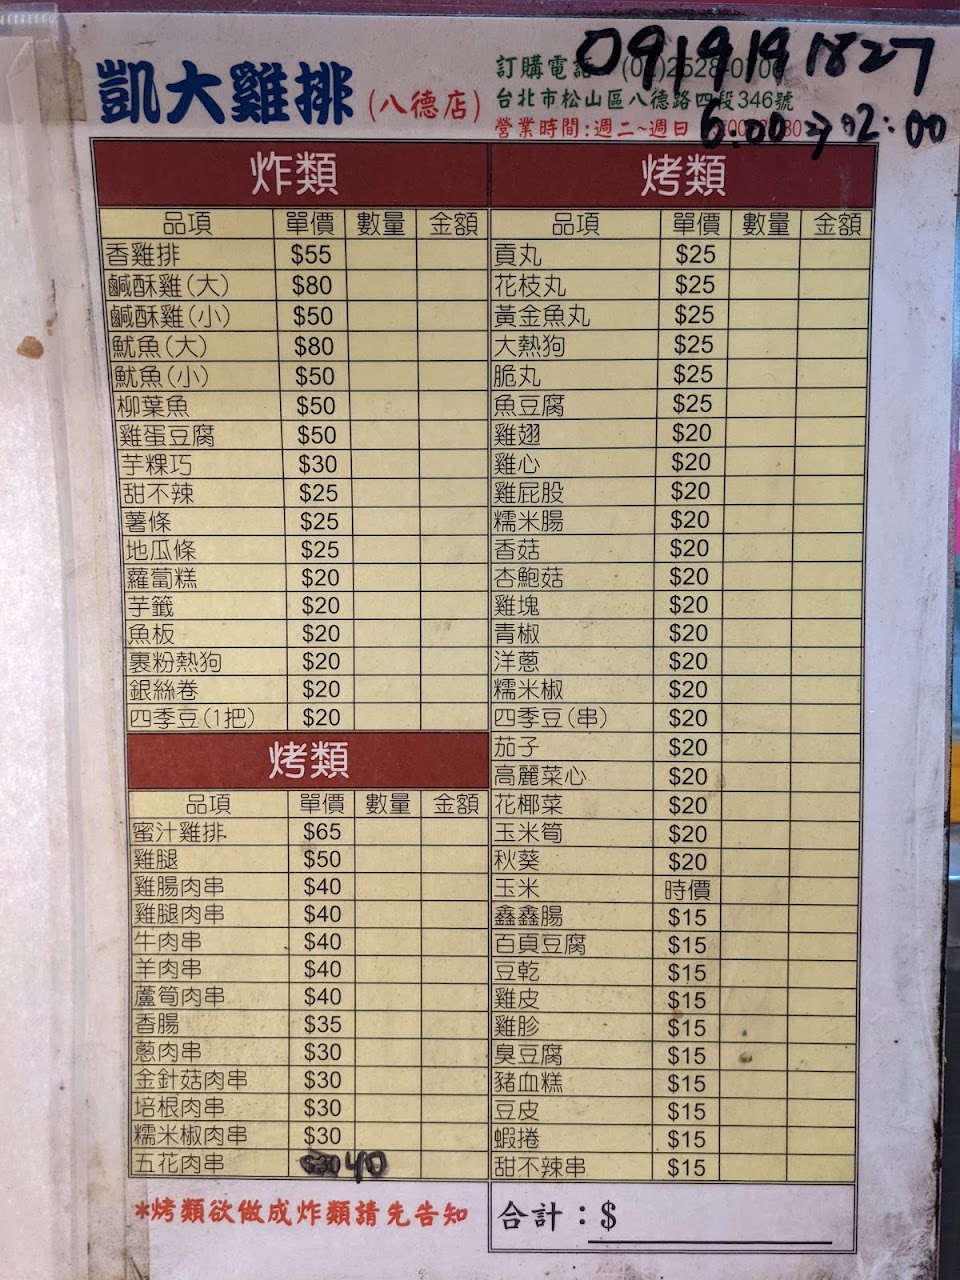 凱大雞排(八德店)
訂購電話 (02)2528-0
0919191827
台北市松山區八德路四段346號
營業時間:週二~週日
6:00⇒02:00
炸類
品項 單價 數量 金額
香雞排 $55
鹹酥雞(大) $80
鹹酥雞(小) $50
魷魚(大) $80
魷魚(小) $50
柳葉魚 $50
雞蛋豆腐 $50
芋粿巧 $30
甜不辣 $25
薯條 $25
地瓜條 $25
蘿蔔糕 $20
芋籤 $20
魚板 $20
裹粉熱狗 $20
銀絲卷 $20
四季豆(1把) $20
烤類
品項 單價 數量 金額
蜜汁雞排 $65
雞腿 $50
雞腸肉串 $40
雞腿肉串 $40
牛肉串 $40
羊肉串 $40
蘆筍肉串 $40
香腸 $35
蔥肉串 $30
金針菇肉串 $30
培根肉串 $30
糯米椒肉串 $30
五花肉串 $30 40
*烤類欲做成炸類請先告知
烤類
品項 單價 數量 金額
貢丸 $25
花枝丸 $25
黃金魚丸 $25
大熱狗 $25
脆丸 $25
魚豆腐 $25
雞翅 $20
雞心 $20
雞屁股 $20
糯米腸 $20
香菇 $20
杏鮑菇 $20
雞塊 $20
青椒 $20
洋蔥 $20
糯米椒 $20
四季豆(串) $20
茄子 $20
高麗菜心 $20
花椰菜 $20
玉米筍 $20
秋葵 $20
玉米 時價
鑫鑫腸 $15
百頁豆腐 $15
豆乾 $15
雞皮 $15
雞胗 $15
臭豆腐 $15
豬血糕 $15
豆皮 $15
蝦捲 $15
甜不辣串 $15
合計：$